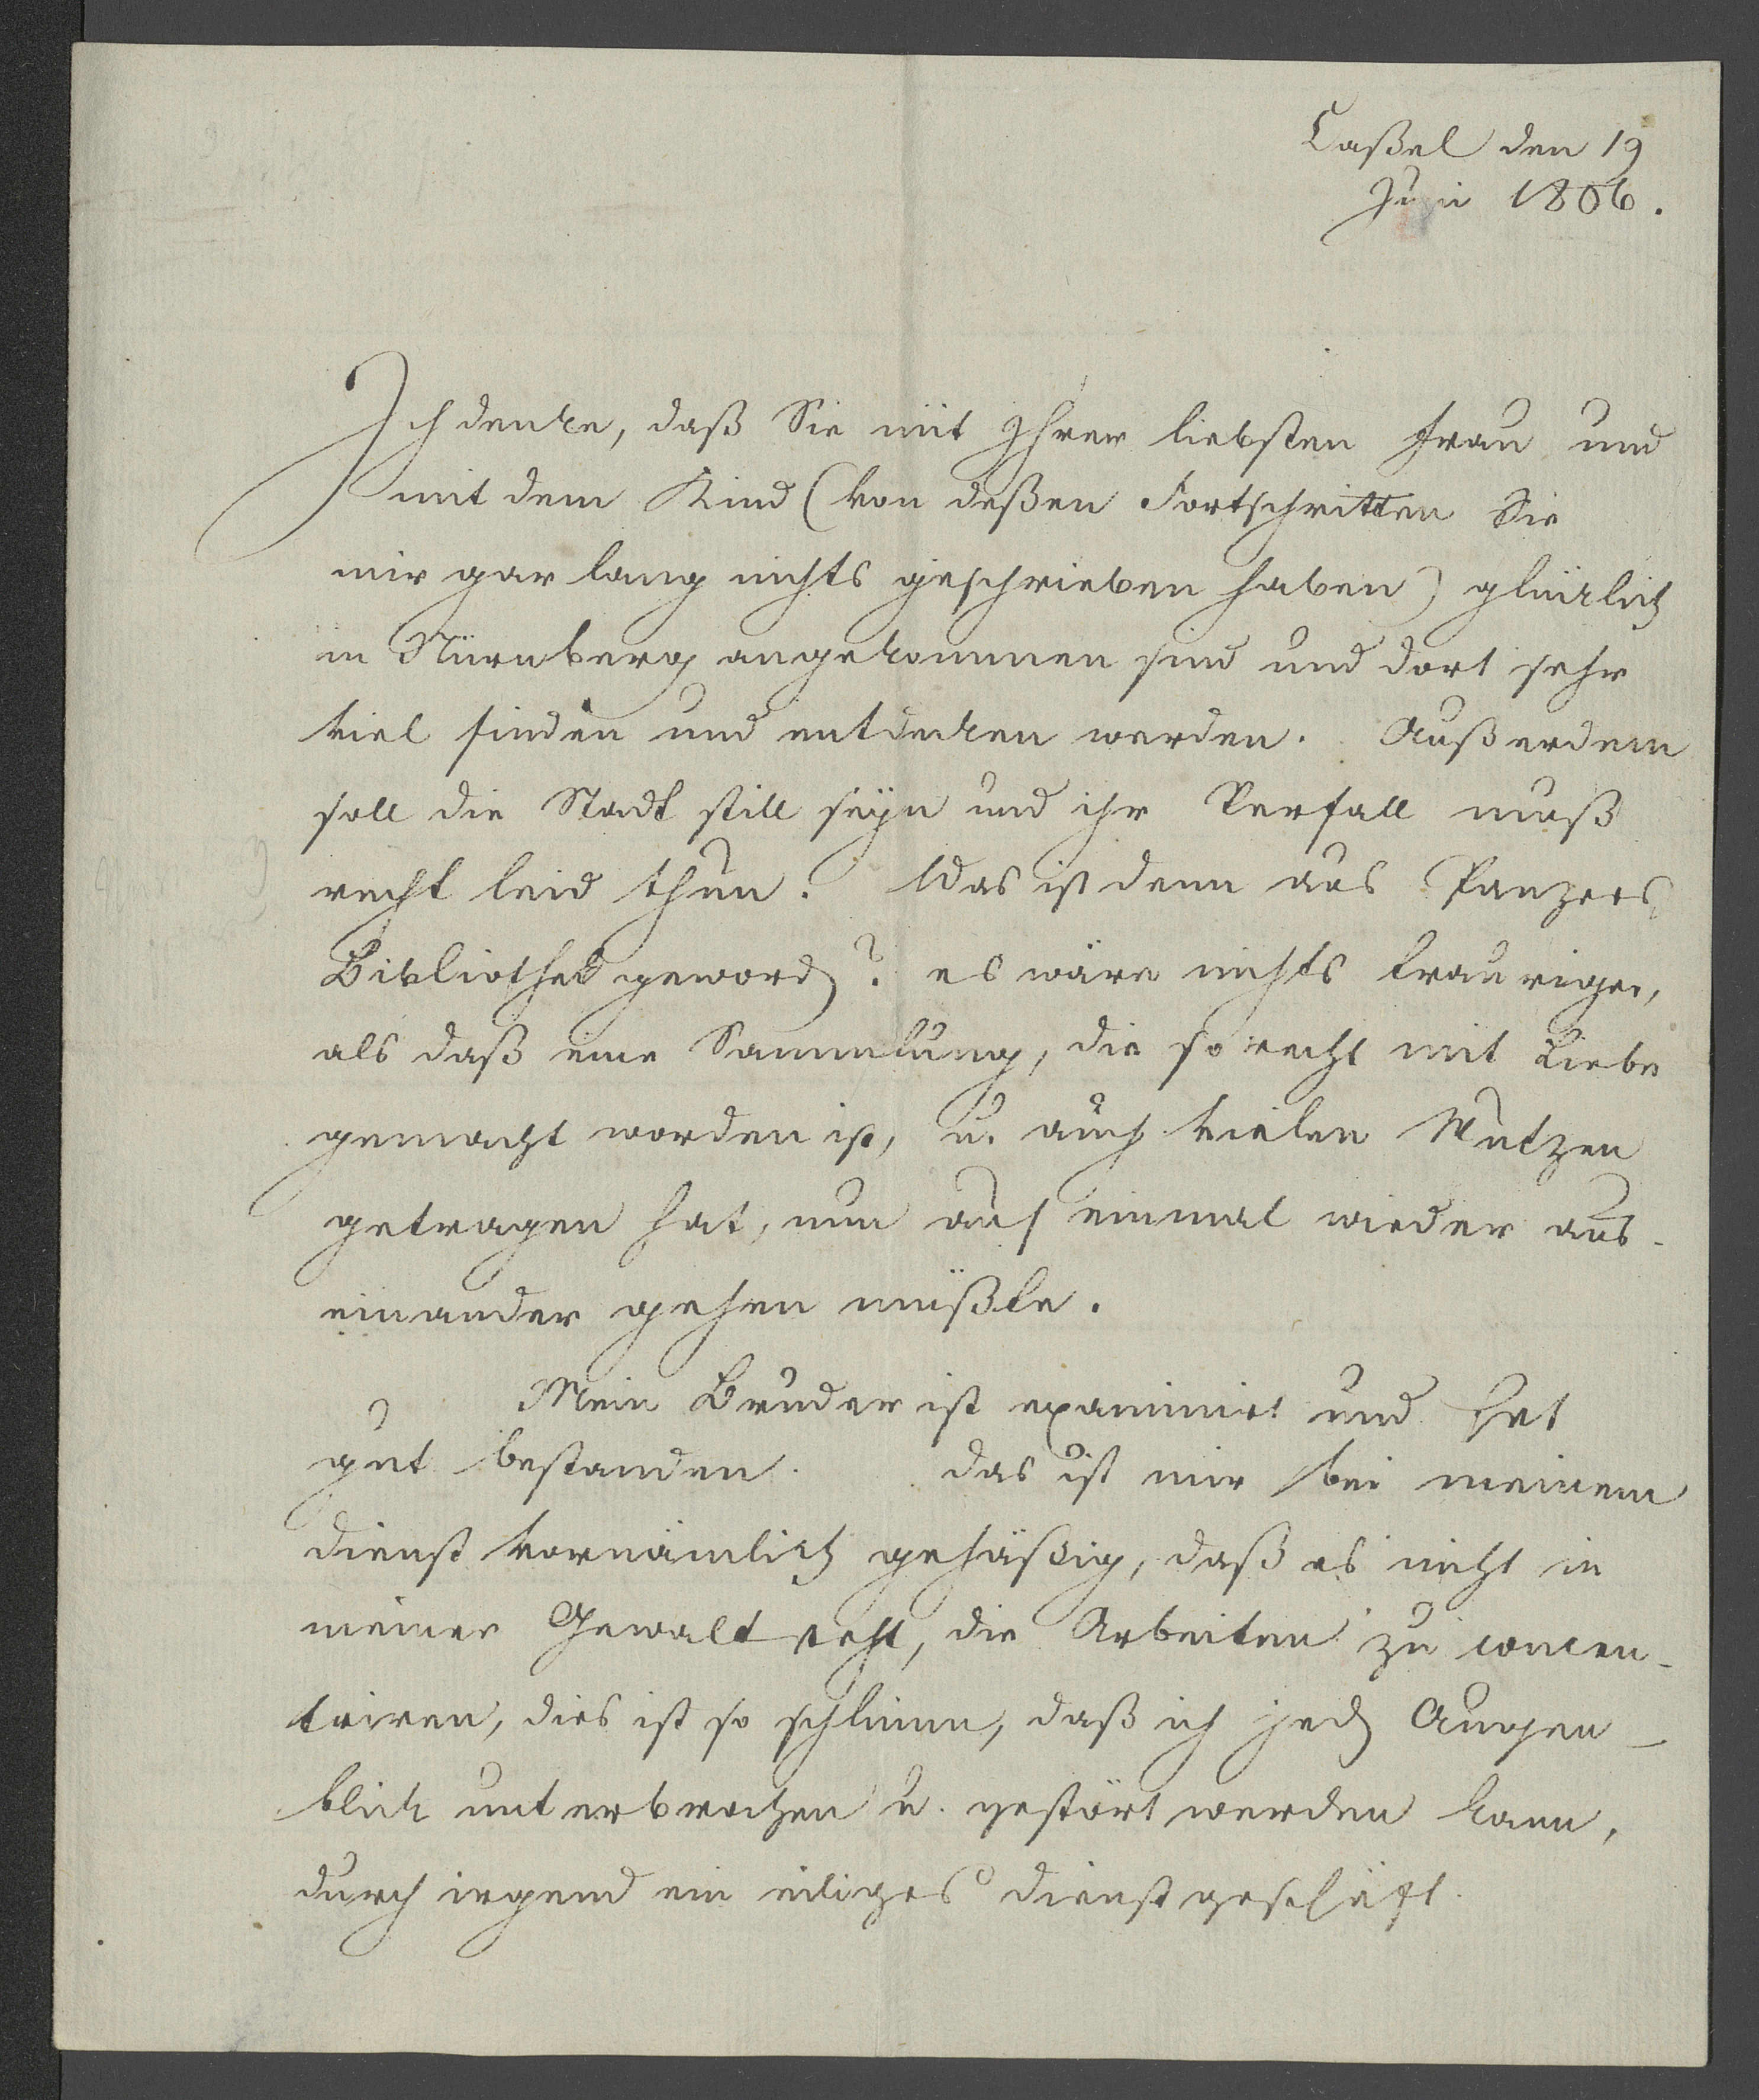 Caßel den 19
Juni 1806.
Ich denke, daß Sie mit Ihrer liebsten Frau und
mit dem Kind (von deßen Fortschritten Sie
mir gar lang nichts geschrieben haben) glücklich
in Nürnberg angekommen sind und dort sehr
viel finden und entdecken werden. Außerdem
soll die Stadt still seyn und ihr Verfall muß
recht leid thun. Was ist denn aus Panzers
Bibliothek geword? es wäre nichts trauriger,
als daß eine Sammlung, die so recht mit Liebe
gemacht worden ist, u. auch vielen Nutzen
getragen hat, nun auf einmal wieder aus-
einander gehen müßte.
Mein Bruder ist examinirt und hat
gut bestanden. das ist mir bei meinem
dienst vornämlich gehäßig, daß es nicht in
meiner Gewalt steht, die Arbeiten zu concen-
triren, dies ist so schlimm, daß ich jed Augen-
blick unterbrochen u. gestört werden kann,
durch irgend ein eiliges dienstgeschäft.